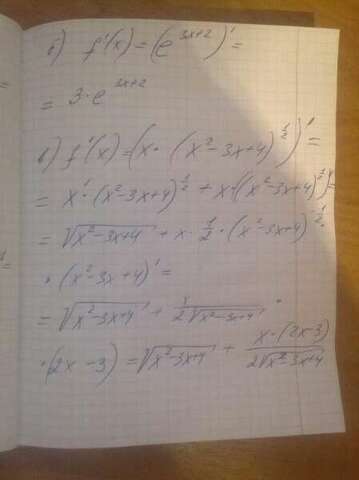 б) f'(x) = (e^(3x+2))' =
= 3·e^(3x+2)
в) f'(x) = (x·(x²-3x+4)^(1/2))' =
= x'·(x²-3x+4)^(1/2) + x·((x²-3x+4)^(1/2))' =
= √(x²-3x+4) + x·1/2·(x²-3x+4)^(-1/2)·
·(x²-3x+4)' =
= √(x²-3x+4) + x/(2√(x²-3x+4)) ·
·(2x-3) = √(x²-3x+4) + x·(2x-3)/(2√(x²-3x+4))